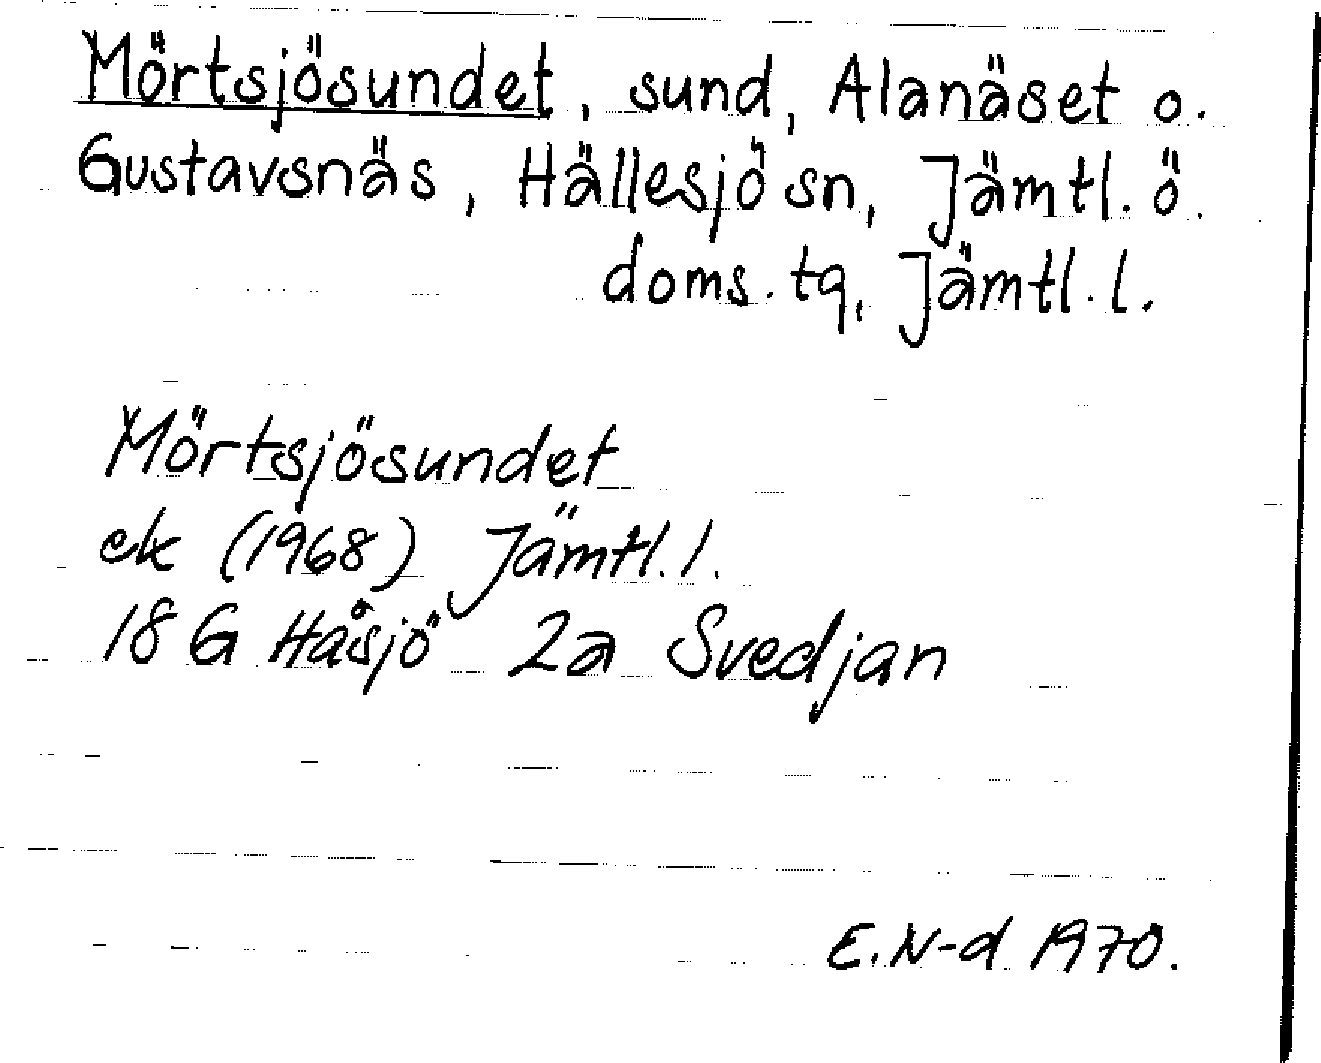 Mörtsjösundet, sund, Alanäset o.
Gustavsnäs, Hällesjö sn, Jämtl. ö.
doms. tq, Jämtl. l.
Mörtsjösundet
ek (1968) Jämtl. l.
18 G Håsjö 2a Svedjan
E. N-d 1970.